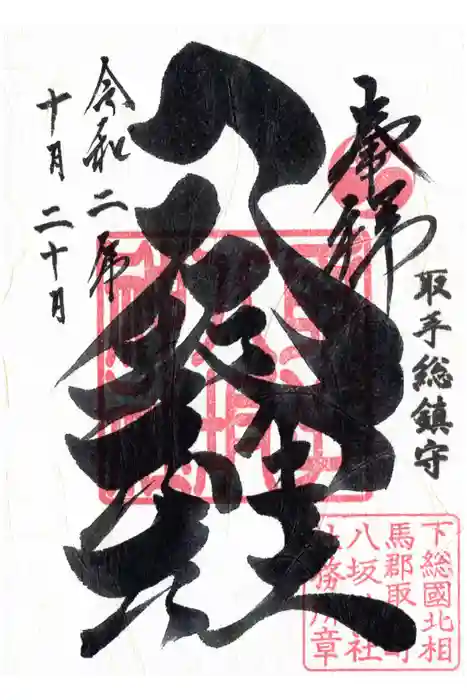 奉拝
取手総鎮守
八坂神社
令和二年
十月二十月
下総國北相
馬郡取手町
八坂神社
社務所章